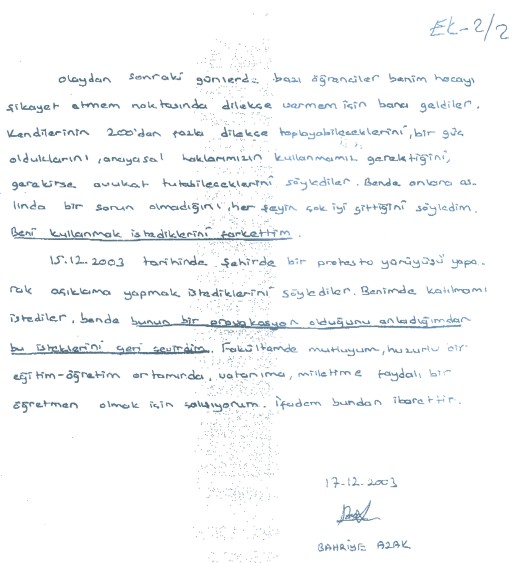 EK-2/2
olaydan sonraki günlerde bazı öğrenciler benim hocayı
şikayet etmem noktasında dilekçe vermem için bana geldiler.
Kendilerinin 200'dan fazla dilekçe toplayabileceklerini, bir güç
olduklarını, anayasal haklarımızın kullanmamız gerektiğini,
gerekirse avukat tutabileceklerini söylediler. Bende onlara as-
lında bir sorun olmadığını, her şeyin çok iyi gittiğini söyledim.
Beni kullanmak istediklerini farkettim.
15.12.2003 tarihinde şehirde bir protesto yürüyüşü yapa-
rak açıklama yapmak istediklerini söylediler. Benimde katılmamı
istediler, bende bunun bir provakasyon olduğunu anladığımdan
bu isteklerini geri çevirdim. Fakültemde mutluyum, huzurlu bir
eğitim-öğretim ortamında, vatanıma, milletime faydalı bir
öğretmen olmak için çalışıyorum. İfadem bundan ibarettir.
17-12-2003
BAHRİYE AZAK